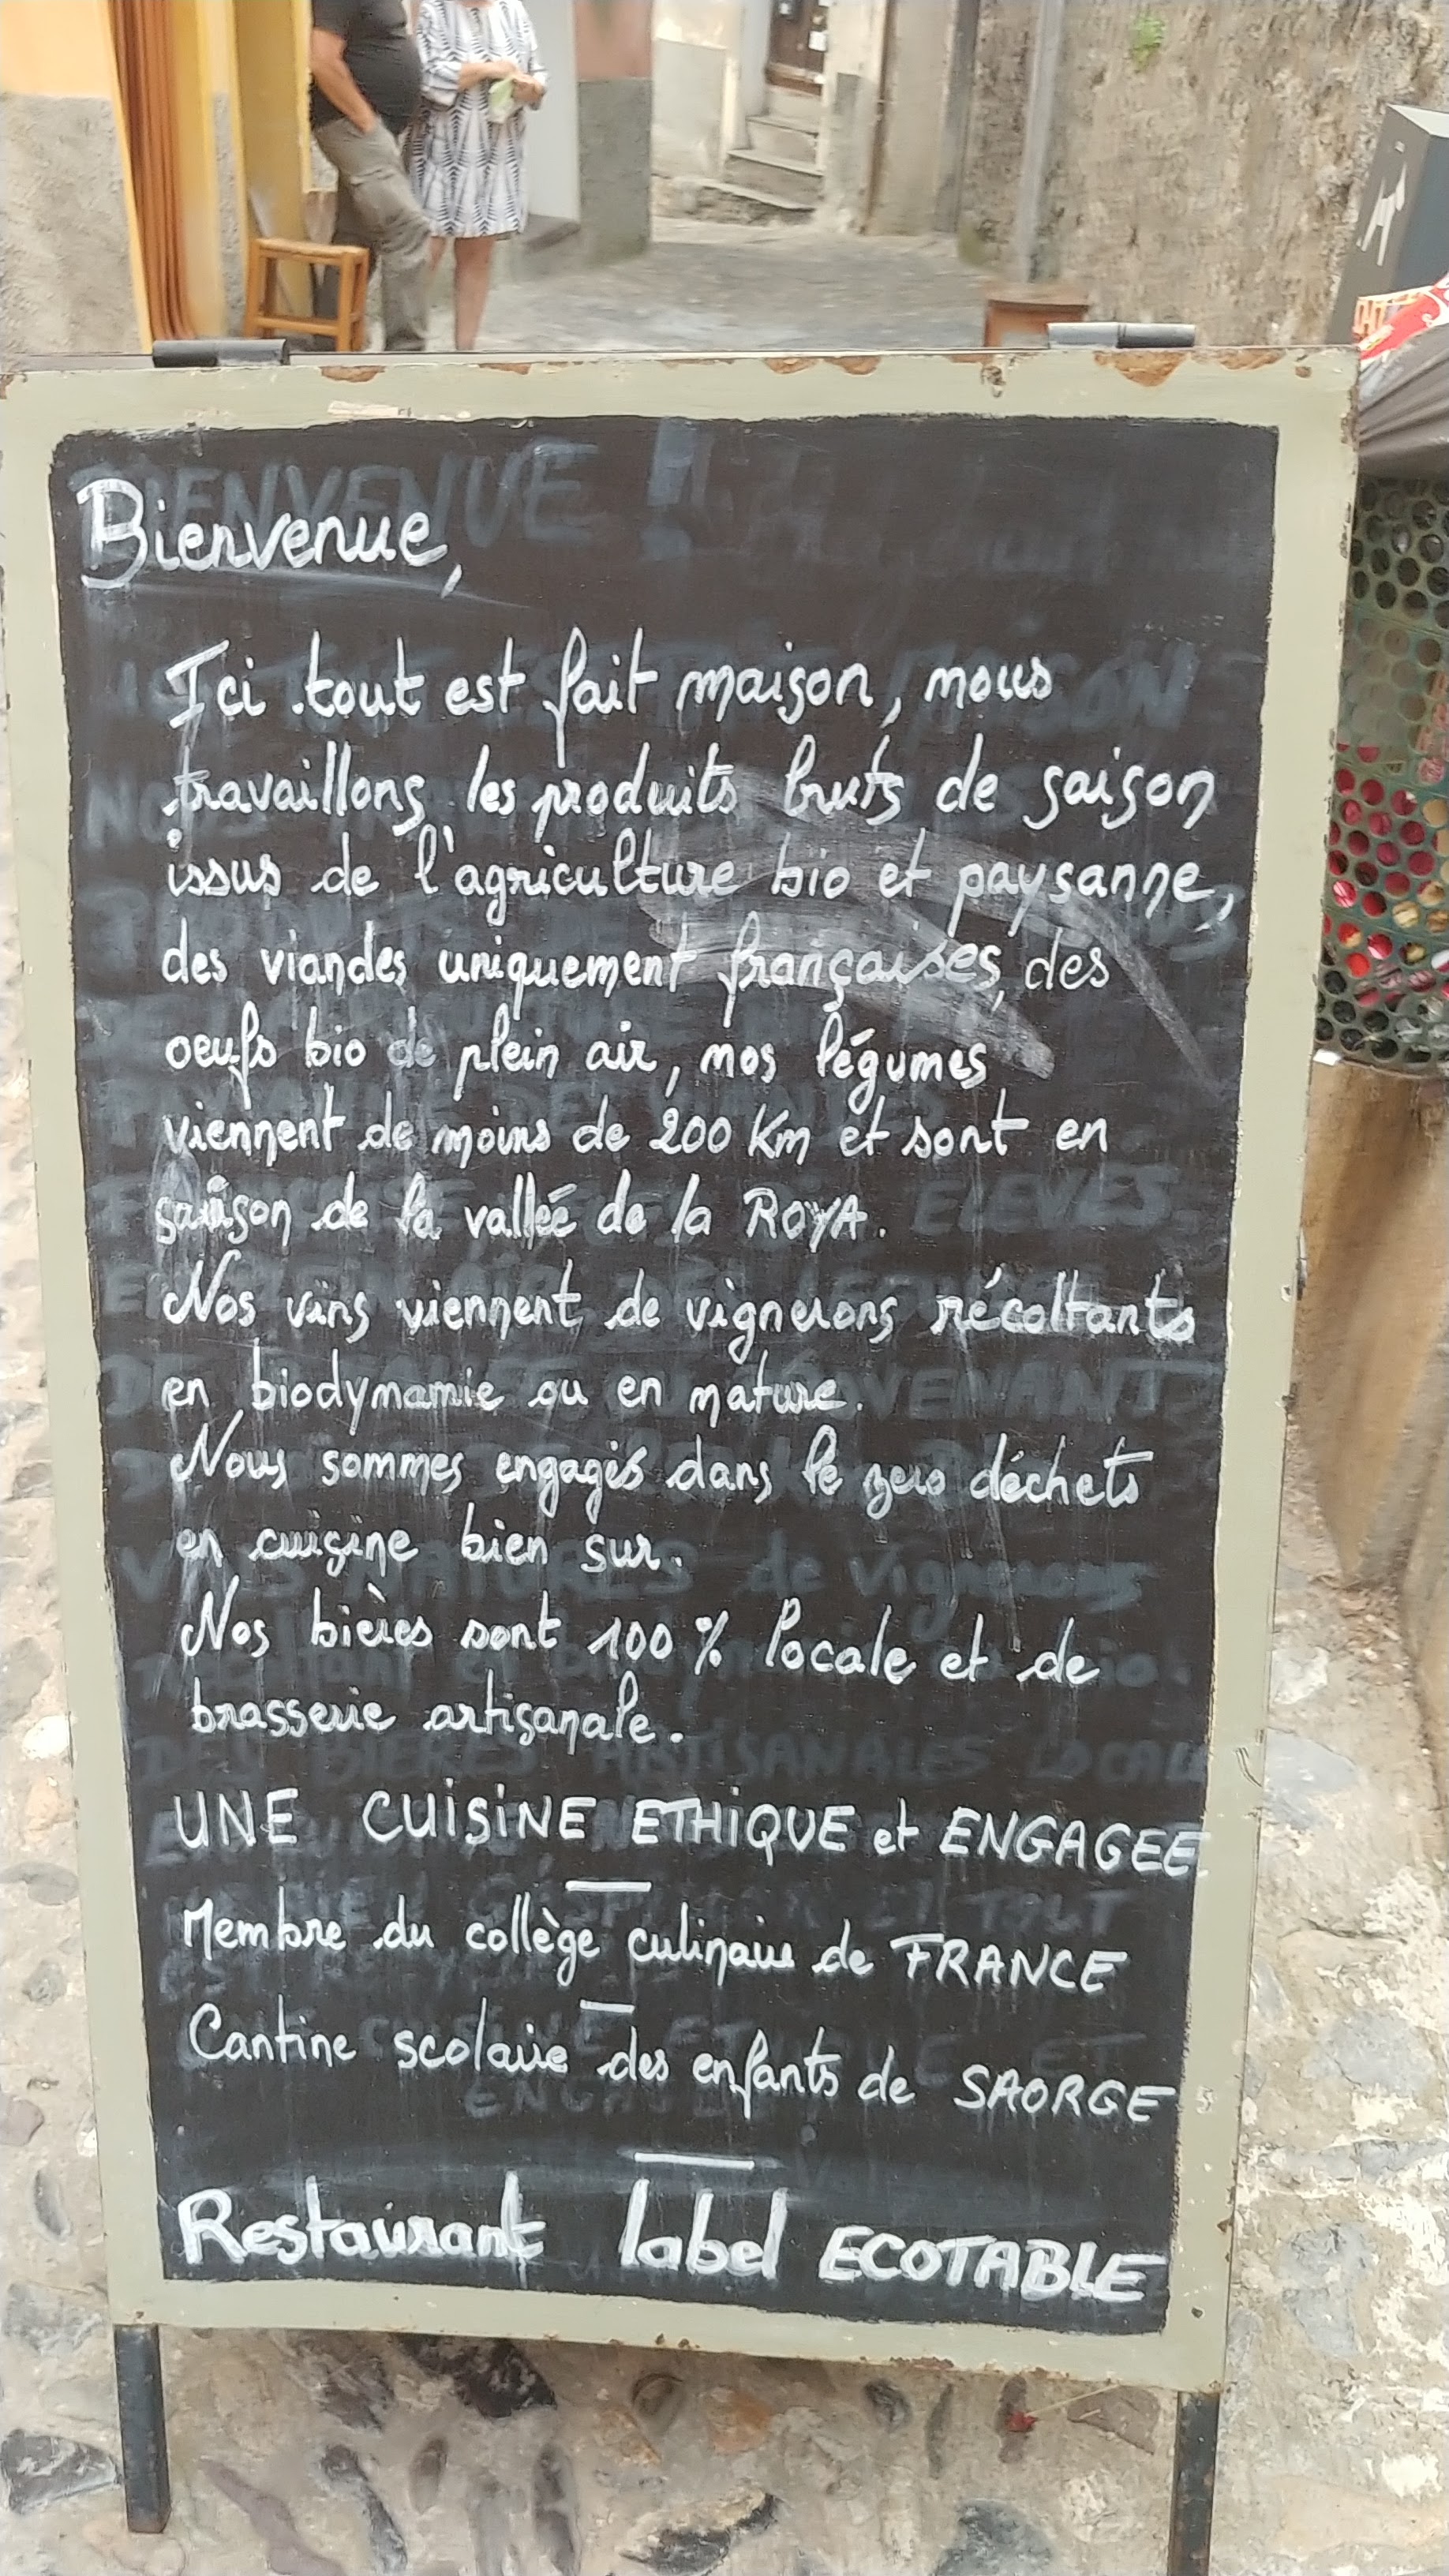 Bienvenue,
Ici tout est fait maison, nous
travaillons les produits bruts de saison
issus de l'agriculture bio et paysanne,
des viandes uniquement françaises, des
oeufs bio de plein air, nos légumes
viennent de moins de 200 Km et sont en
saison de la vallée de la ROYA.
Nos vins viennent de vignerons récoltants
en biodynamie ou en nature.
Nous sommes engagés dans le zero déchets
en cuisine bien sur.
Nos bières sont 100 % locale et de
brasserie artisanale.
UNE CUISINE ETHIQUE et ENGAGEE.
Membre du collège culinaire de FRANCE
Cantine scolaire des enfants de SAORGE
Restaurant label ECOTABLE